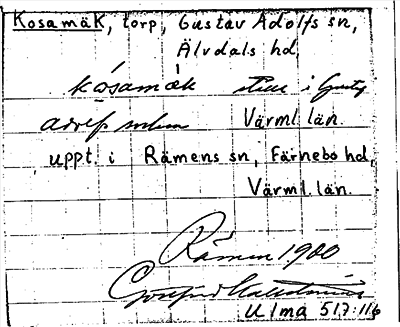 Kosamäk, torp, Gustav Adolfs sn,
Älvdals hd,
kósamäk i Gust.
Adolfs Värml. län.
uppt. i Rämens sn, Färnebo hd,
Värml. län.
Rämen 1900
Gottfrid Kallstenius
Ulma 517:116